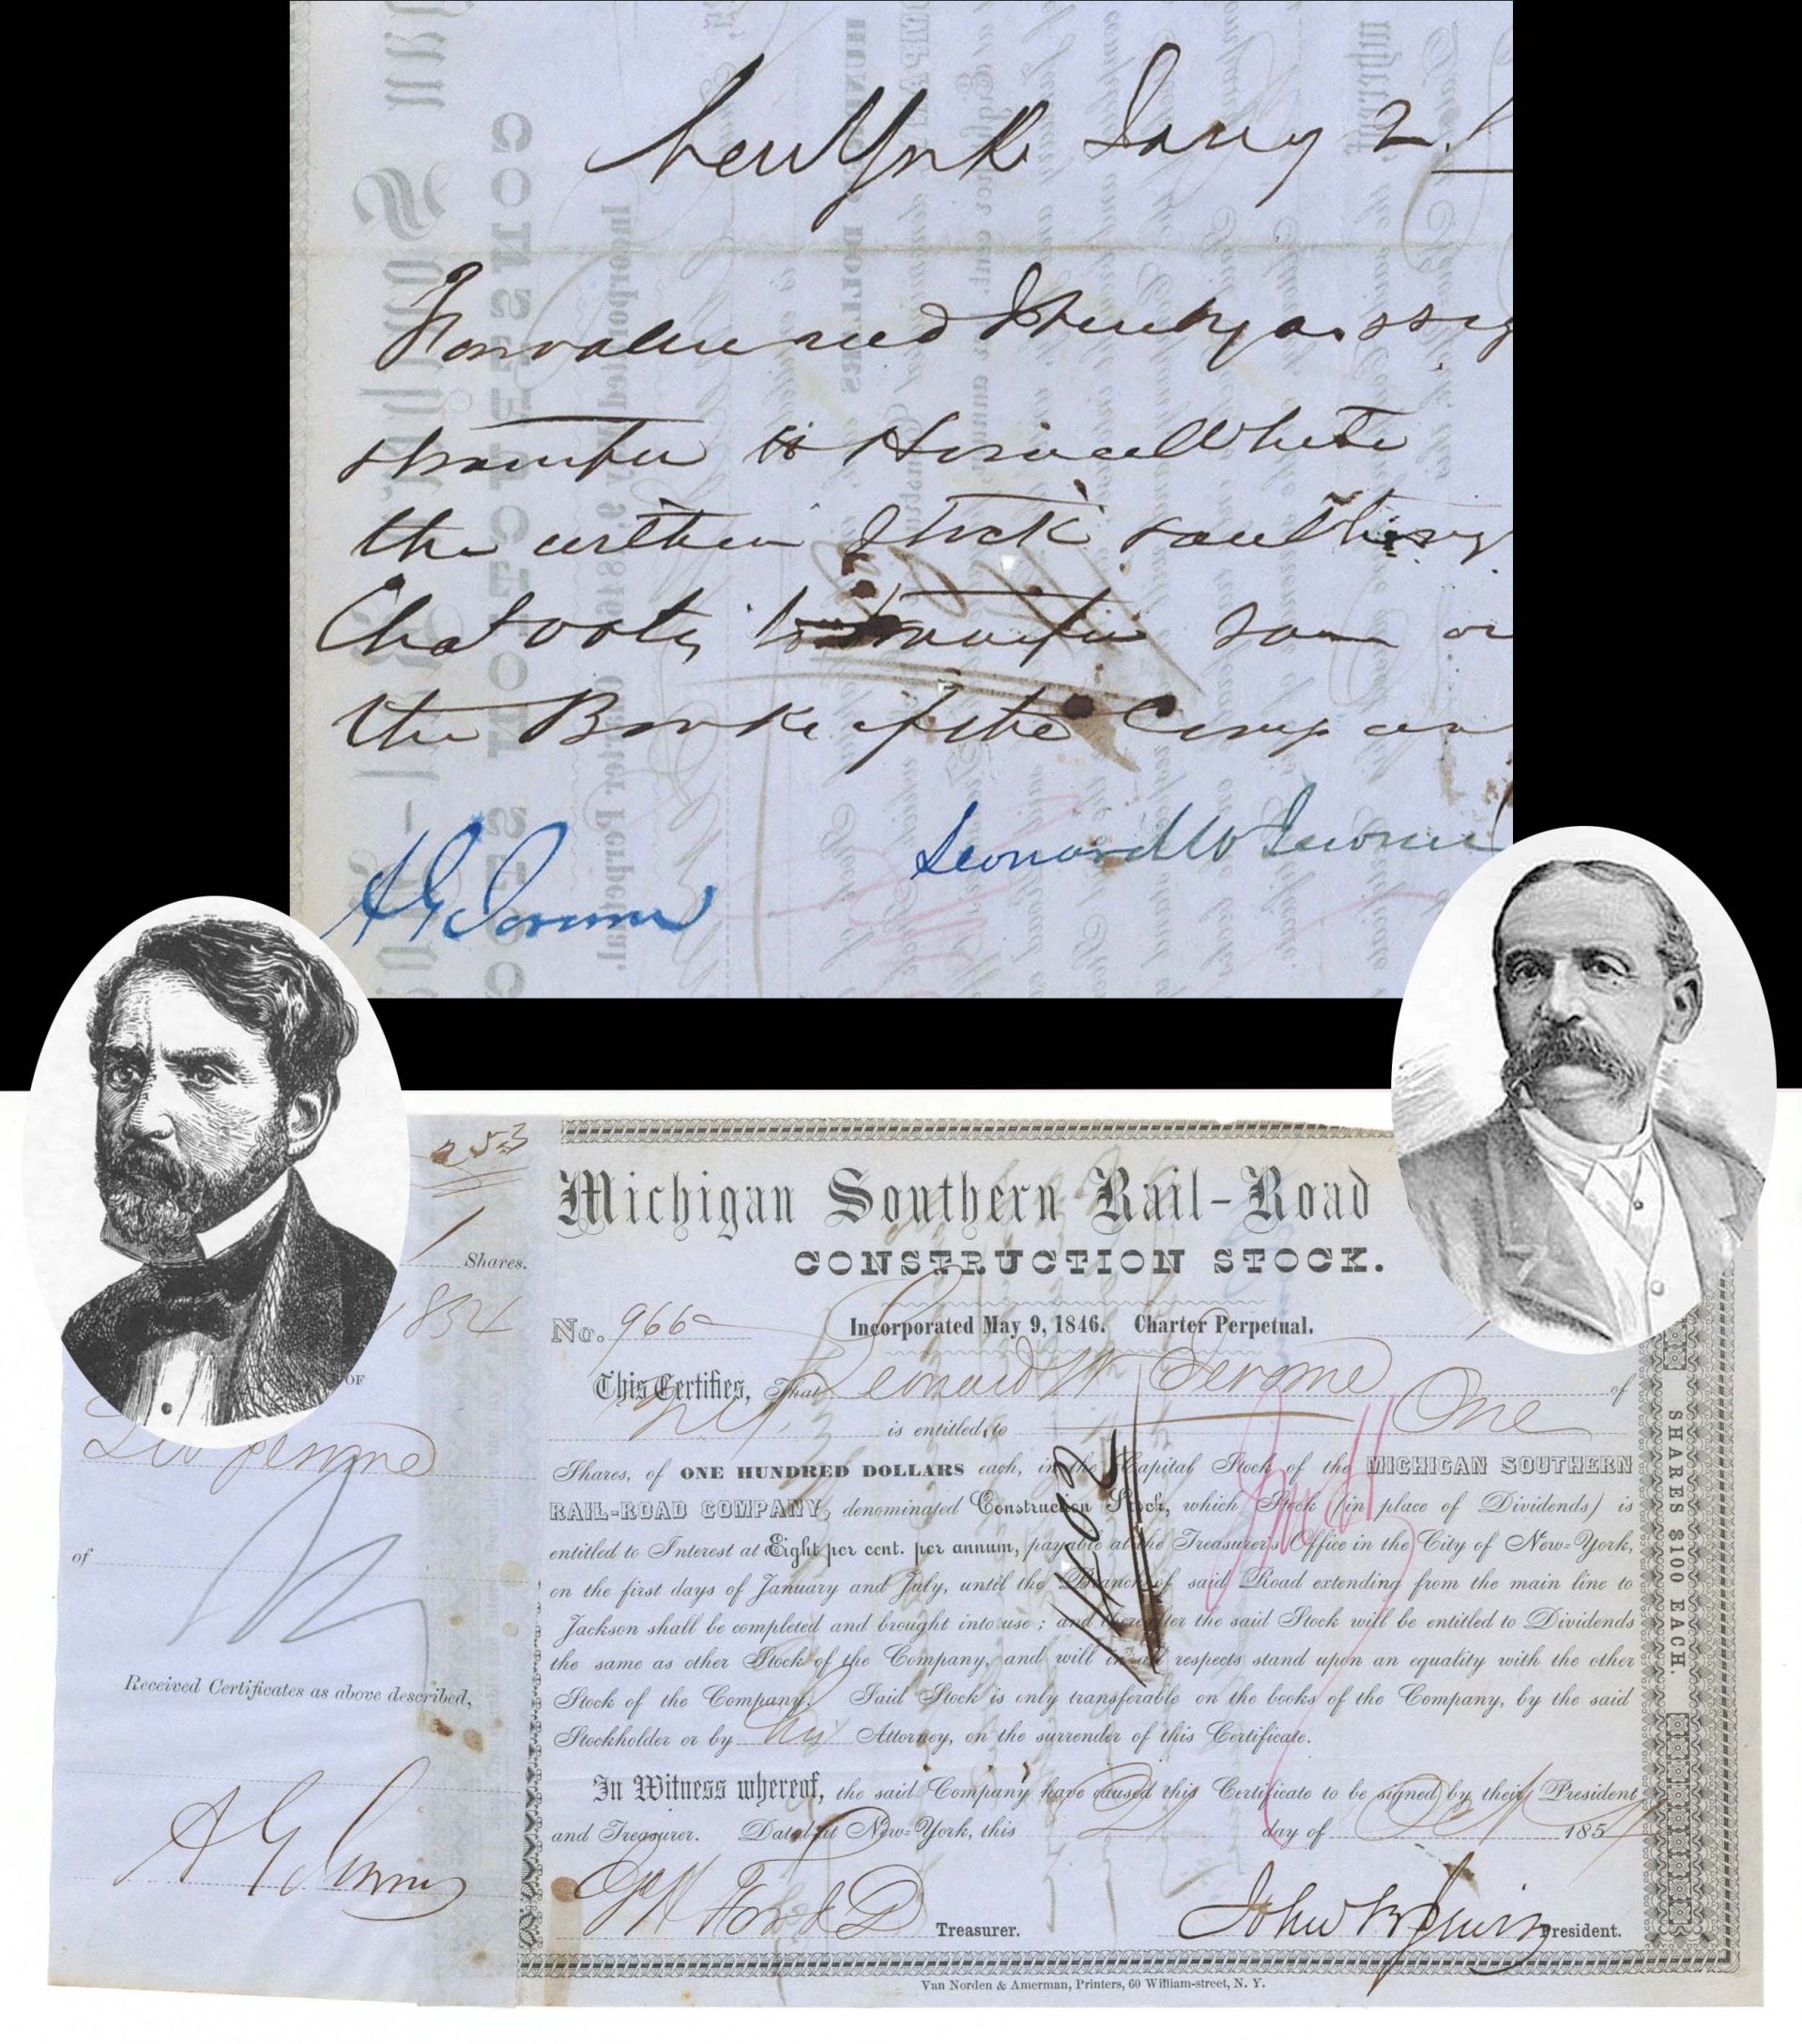 New York Jany 2.
For value recd I hereby assig
transfer to Horace White
the within Stock
to transfer same on
the Books of the Compan
Leonard W Jerome
A G Jerome
253
1 Shares.
1854
OF
Leo Jerome
of
Received Certificates as above described,
A G Jerome
Michigan Southern Rail-Road
CONSTRUCTION STOCK.
No. 966
Incorporated May 9, 1846. Charter Perpetual.
This Certifies, That Leonard W Jerome of
is entitled to One
Shares, of ONE HUNDRED DOLLARS each, in the Capital Stock of the MICHIGAN SOUTHERN
RAIL-ROAD COMPANY, denominated Construction Stock, which Stock (in place of Dividends) is
entitled to Interest at Eight per cent. per annum, payable at the Treasurer's Office in the City of New-York,
on the first days of January and July, until the Branch of said Road extending from the main line to
Jackson shall be completed and brought into use; and thereafter the said Stock will be entitled to Dividends
the same as other Stock of the Company, and will in all respects stand upon an equality with the other
Stock of the Company. Said Stock is only transferable on the books of the Company, by the said
Stockholder or by his Attorney, on the surrender of this Certificate.
In Witness whereof, the said Company have caused this Certificate to be signed by their President
and Treasurer. Dated at New-York, this 21 day of 185
Treasurer.
John B Jervis President.
SHARES $100 EACH.
Van Norden & Amerman, Printers, 60 William-street, N. Y.